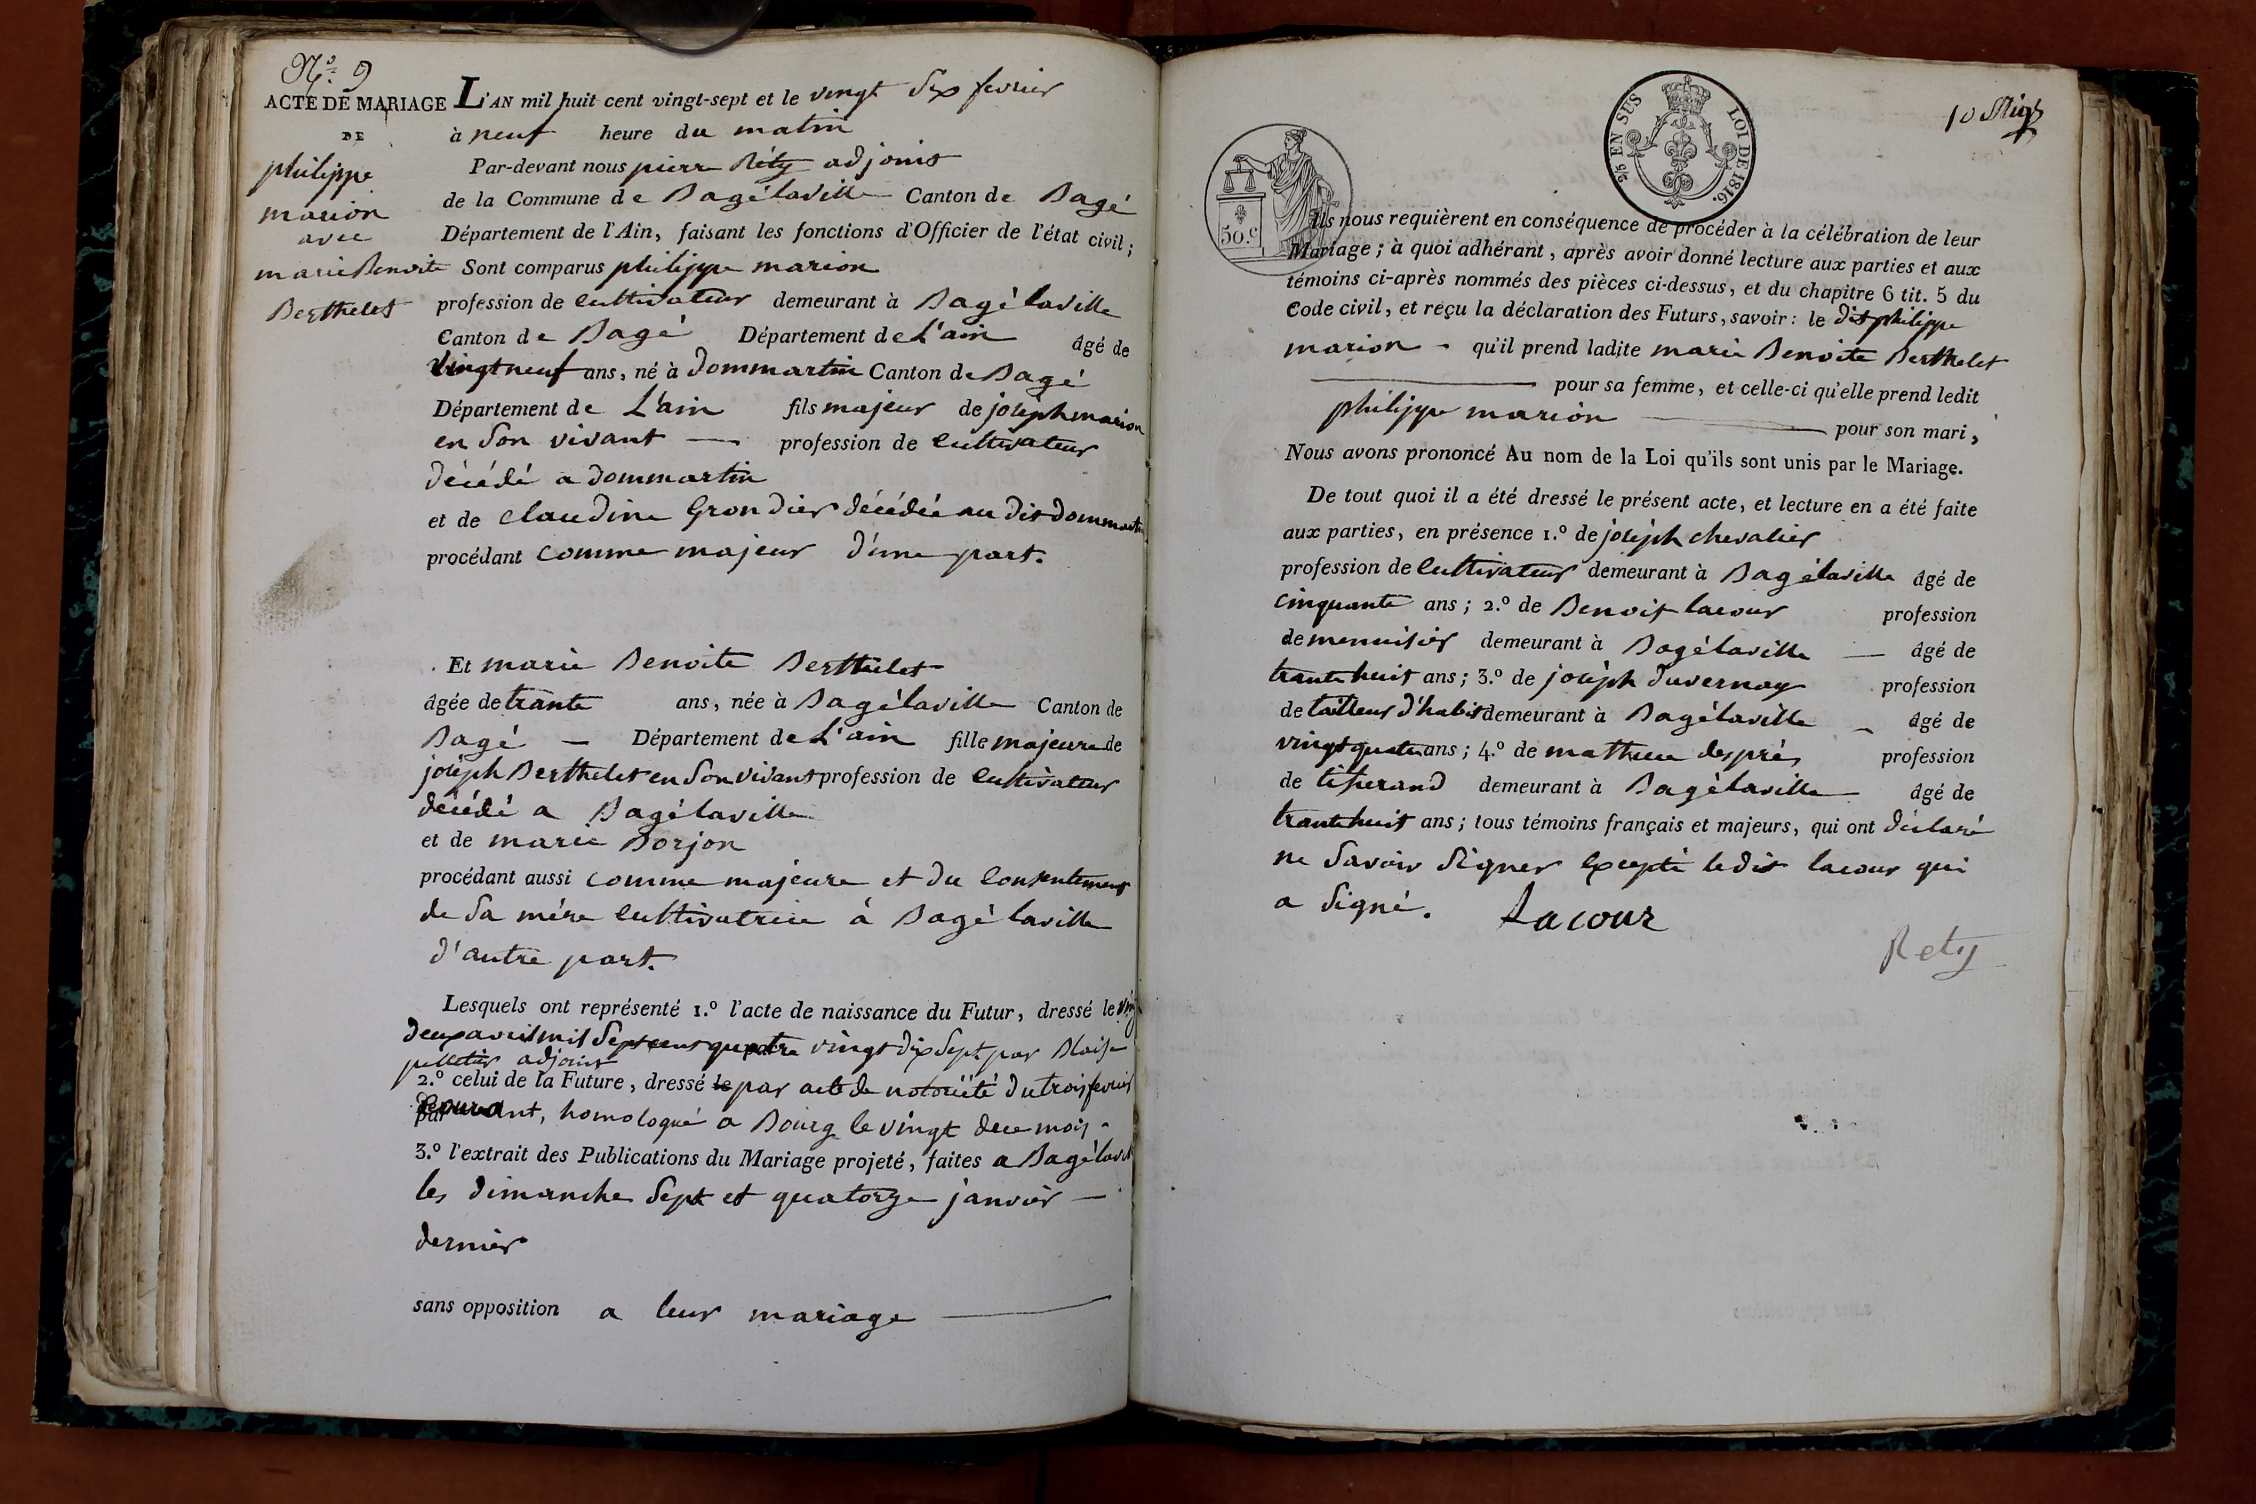 N.º 9
ACTE DE MARIAGE
DE
philippe
marion
avec
marie Benoite
Berthelet
L'AN mil huit cent vingt-sept et le vingt six fevrier
à neuf heure du matin
Par-devant nous pierre Réty adjoint
de la Commune de Bagélaville Canton de Bagé
Département de l'Ain, faisant les fonctions d'Officier de l'état civil;
Sont comparus philippe marion
profession de cultivateur demeurant à Bagélaville
Canton de Bagé Département de L'ain âgé de
vingt neuf ans, né à Dommartin Canton de Bagé
Département de L'ain fils majeur de joseph marion
en son vivant — profession de cultivateur
décédé a dommartin
et de claudine Grondier décédée au dit dommartin
procédant comme majeur d'une part.
Et marie Benoite Berthelet
âgée de trante ans, née à Bagélaville Canton de
Bagé — Département de L'ain fille majeure de
joseph Berthelet en son vivant profession de cultivateur
décédé a Bagélaville
et de marie Borjon
procédant aussi comme majeure et du consentement
de sa mére cultivatrice à Bagélaville
d'autre part.
Lesquels ont représenté 1.º l'acte de naissance du Futur, dressé le ving
deux avril mil sept cent quatre vingt dix sept par Blaise
pelletier adjoint
2.º celui de la Future, dressé le par acte de notoriété du trois fevrier
par courant, homologué a Bourg le vingt de ce mois
3.º l'extrait des Publications du Mariage projeté, faites a Bagélavil
les dimanche sept et quatorze janvier —
dernier
sans opposition a leur mariage —
10 
25 EN SUS LOI DE 1816.
50.c
Ils nous requièrent en conséquence de procéder à la célébration de leur
Mariage; à quoi adhérant, après avoir donné lecture aux parties et aux
témoins ci-après nommés des pièces ci-dessus, et du chapitre 6 tit. 5 du
Code civil, et reçu la déclaration des Futurs, savoir: le dit philippe
marion - qu'il prend ladite marie Benoite Berthelet
— pour sa femme, et celle-ci qu'elle prend ledit
philippe marion — pour son mari,
Nous avons prononcé Au nom de la Loi qu'ils sont unis par le Mariage.
De tout quoi il a été dressé le présent acte, et lecture en a été faite
aux parties, en présence 1.º de joseph chevalier
profession de cultivateur demeurant à Bagélaville âgé de
cinquante ans; 2.º de Benoit lacour profession
de menuisier demeurant à Bagélaville — âgé de
trante huit ans; 3.º de joseph duvernay profession
de tailleur d'habit demeurant à Bagélaville - âgé de
vingt quatre ans; 4.º de mathieu desprès profession
de tisserand demeurant à Bagélaville âgé de
trante huit ans; tous témoins français et majeurs, qui ont déclaré
ne savoir signer excepté le dit lacour qui
a signé. Lacour
Réty